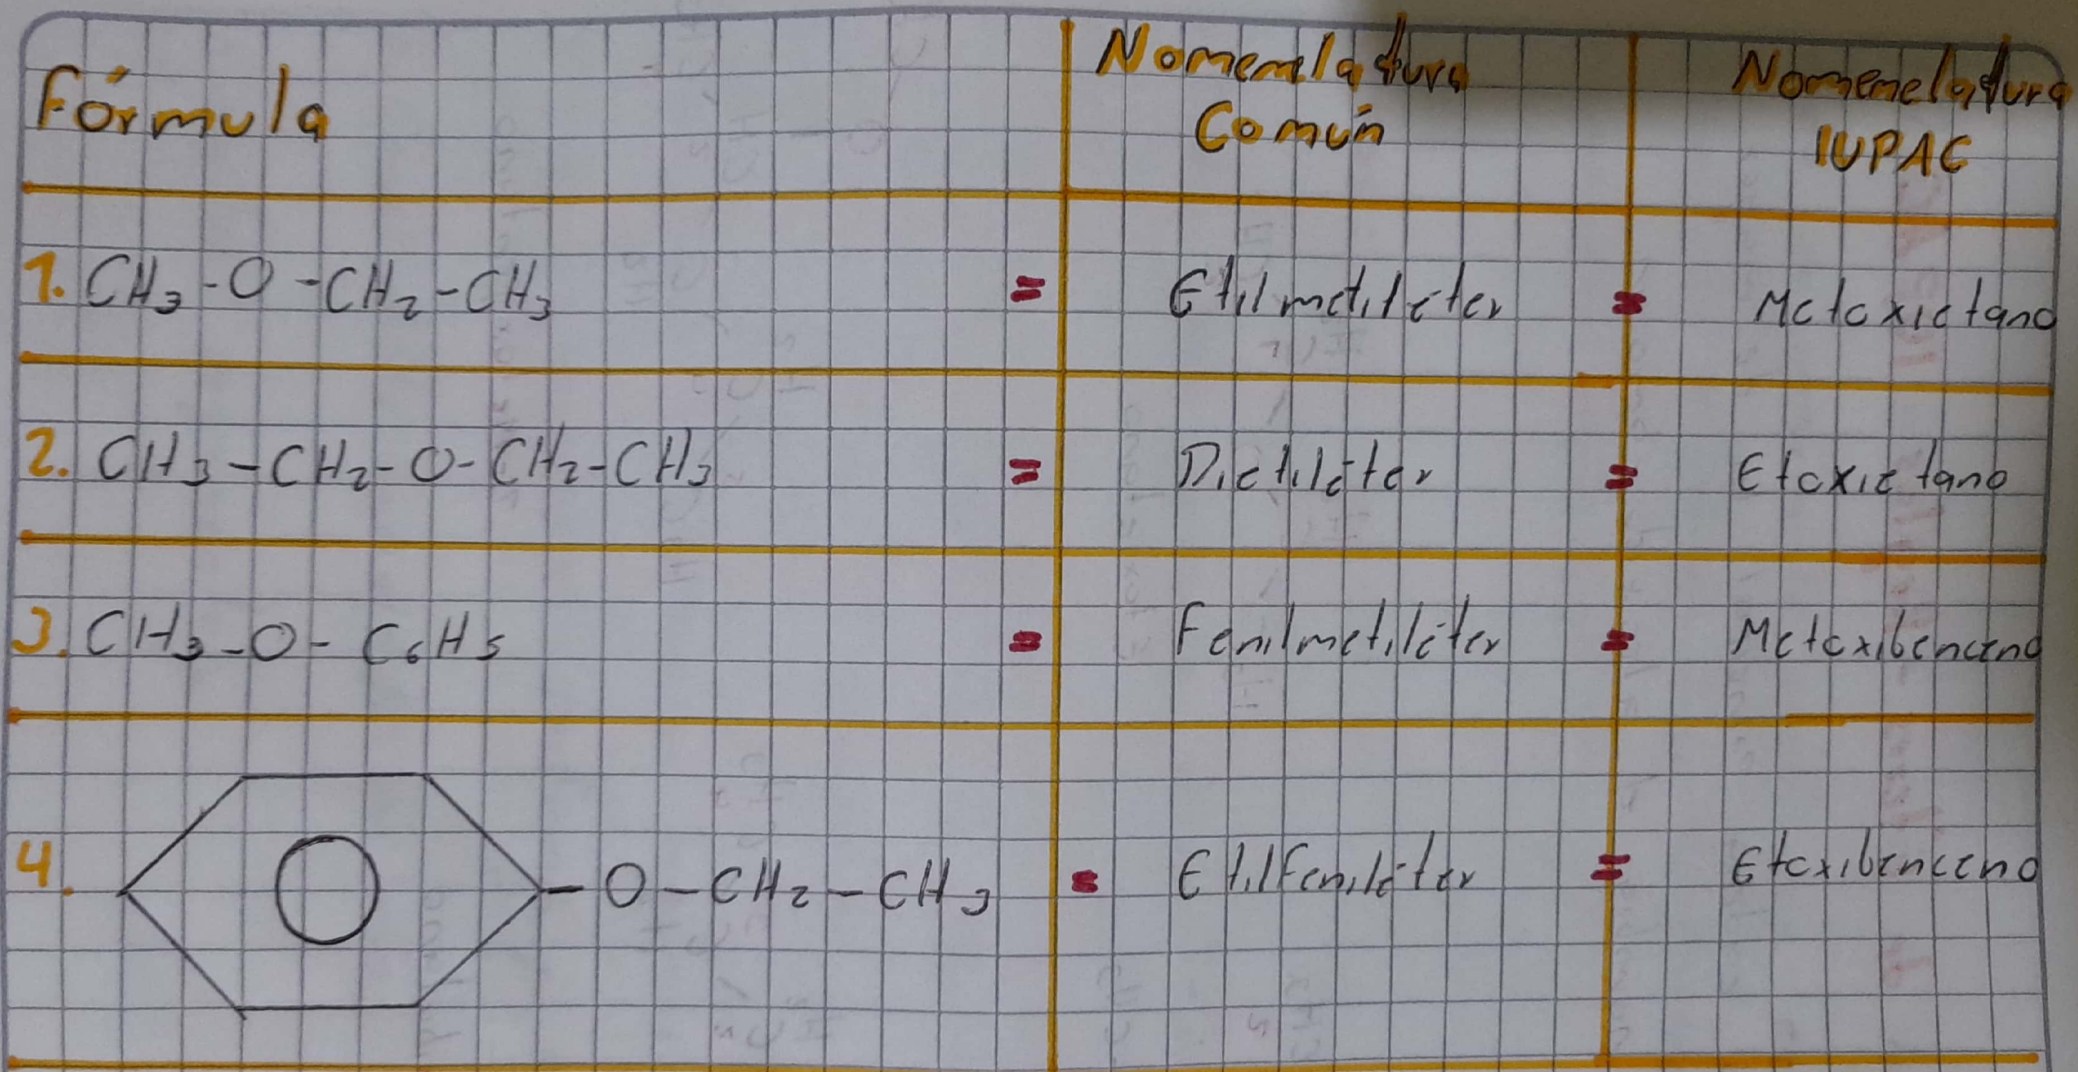 Fórmula
Nomenclatura
Común
Nomenclatura
IUPAC
1. CH3-O-CH2-CH3 = Etilmetiléter = Metoxietano
2. CH3-CH2-O-CH2-CH3 = Dietiléter = Etoxietano
3. CH3-O-C6H5 = Fenilmetiléter = Metoxibenceno
4. -O-CH2-CH3 = Etilfeniléter = Etoxibenceno